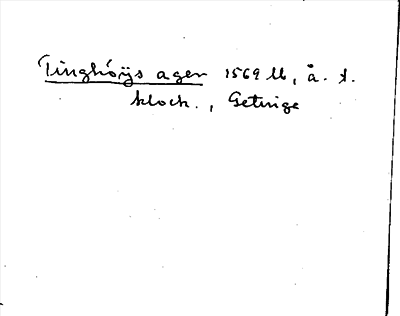 Tinghöijs ager 1569 ll, å. t.
klock., Getinge